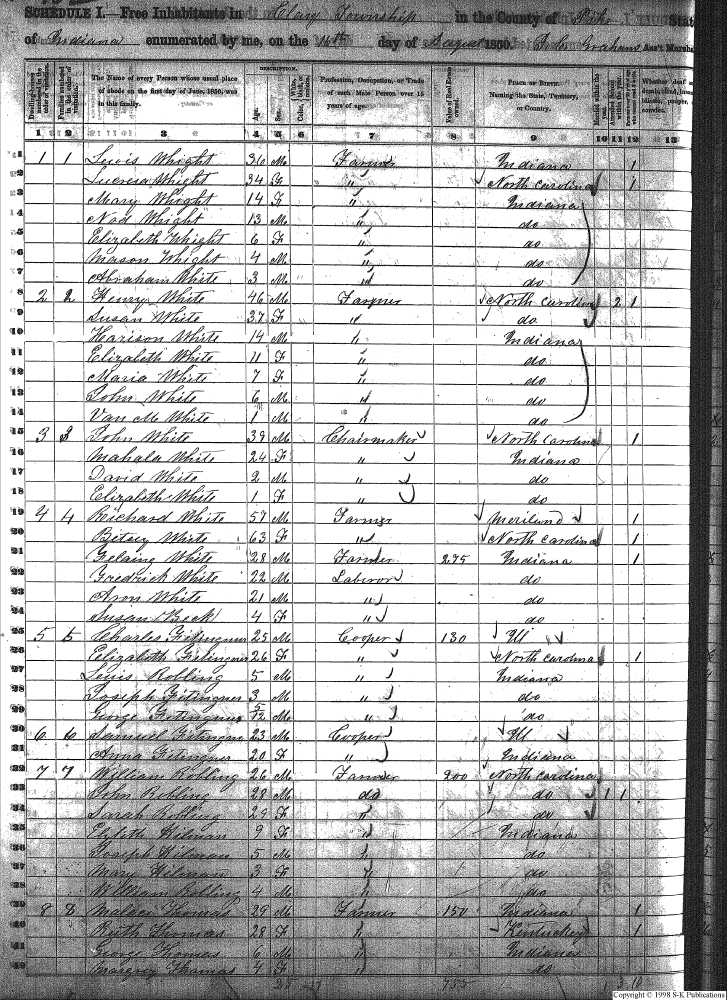 SCHEDULE I. Free Inhabitants in Clay Township in the County of Pike State
of Indiana enumerated by me, on the 14th day of August 1850. John Grahams Ass't Marshal
DESCRIPTION.
Dwelling-houses numbered in the order of visitation. Families numbered in the order of visitation. The Name of every Person whose usual place of abode on the first day of June, 1850, was in this family. Age. Sex. Color, Profession, Occupation, or Trade of each Male Person over 15 years of age. Value of Real Estate owned. Place of Birth. Naming the State, Territory, or Country. Married within the year. Whether deaf and dumb, blind, insane, idiotic, pauper, or convict.
1 2 3 4 5 6 7 8 9 10 11 12 13
1 1 1 Lewis Whight 36 M Farmer Indiana 1
2 Lucresa Whight 34 F " North Carolina 1
3 Mary Whight 14 F " Indiana
4 Nod Whight 13 M " do
5 Elizabeth Whight 6 F " do
6 Mason Whight 4 M " do
7 Abraham White 3 M " do
8 2 2 Henry White 46 M Farmer North Carolina 2 1
9 Susan White 37 F " do
10 Harison White 14 M " Indiana
11 Elizabeth White 11 F " do
12 Maria White 7 F " do
13 John White 6 M " do
14 Van M White 1 M " do
15 3 3 John White 39 M Chairmaker North Carolina 1
16 Mahala White 24 F " Indiana
17 David White 2 M " do
18 Elizabeth White 1 F " do
19 4 4 Reichard White 57 M Farmer Merilund 1
20 Betsey White 63 F " North Carolina 1
21 White 28 M Farmer 275 Indiana 1
22 Fredrick White 22 M Laberor do
23 Aron White 21 M " do
24 Susan Beck 4 F " do
25 5 5 Charles 25 M Cooper 130 Ill
26 Elizabeth 26 F " North Carolina 1
27 Lewis Robling 5 M " Indiana
28 Joseph 3 M " do
29 George 5/12 M " do
30 6 6 Samuel 23 M Cooper Ill
31 Anna 20 F " Indiana
32 7 7 William Robling 26 M Farmer 200 North Carolina
33 John Robling 28 M do do 1 1
34 Sarah Robling 29 F " do
35 Hilman 9 F " Indiana
36 Joseph Hilman 5 M " do
37 Mary Hilman 3 F " do
38 William Robling 4 M " do
39 8 8 Malaci Thomas 29 M Farmer 150 Indiana 1
40 Ruth Thomas 28 F " Kentuckey 1
41 George Thomas 6 M " Indiana
42 Thomas 4 F " do
755
Copyright © 1998 S-K Publications